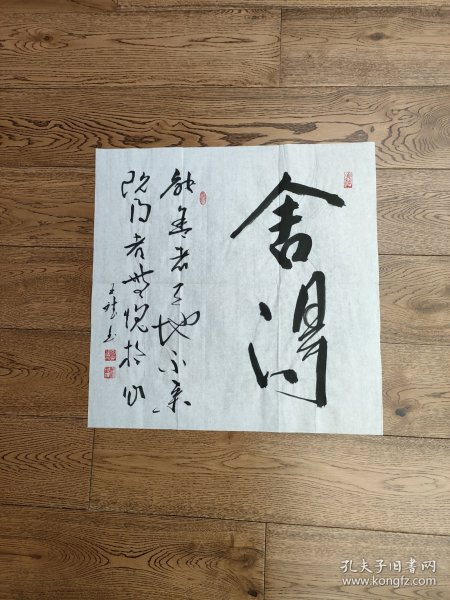 舍得
能舍者天地不弃
既得者无愧于心
孔夫子旧书网
www.kongfz.com